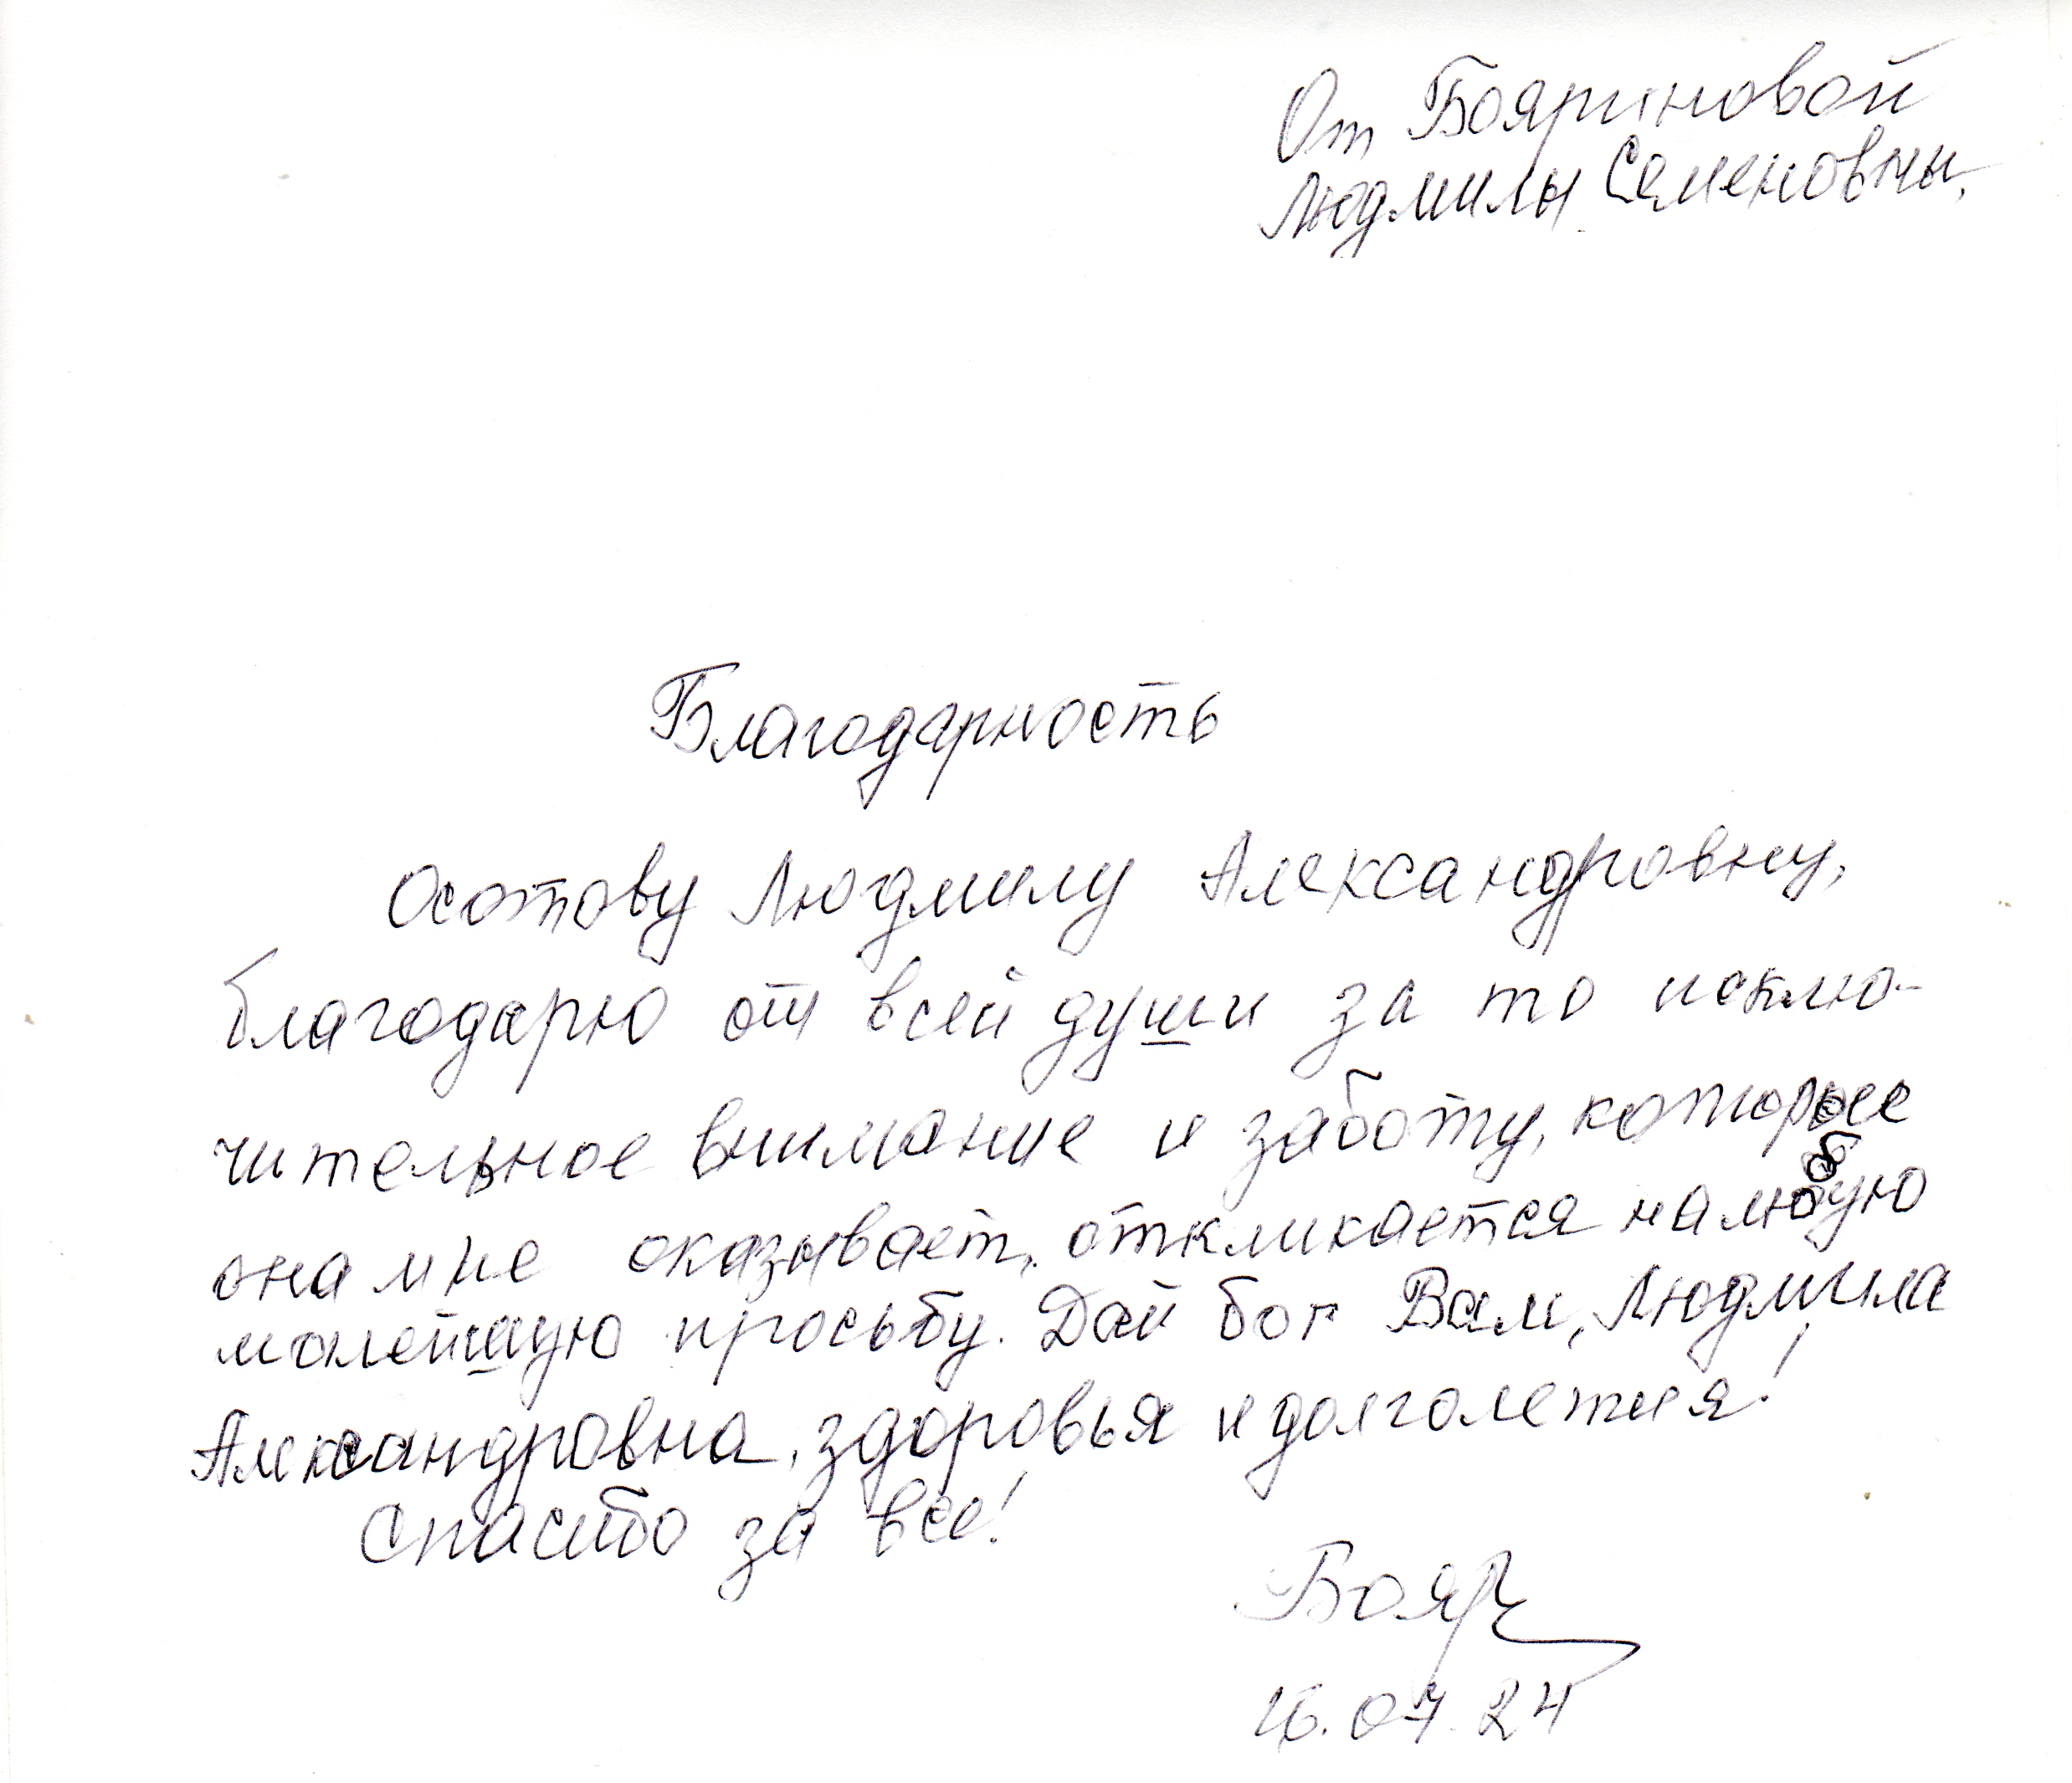 От Бояриновой
Людмилы Семеновны.
Благодарность
Осотову Людмилу Александровну,
благодарю от всей души за то исклю-
чительное внимание и заботу, которые
она мне оказывает, откликается на любую
малейшую просьбу. Дай бог Вам, Людмила
Александровна, здоровья и долголетия!
Спасибо за все!
Бояр
16.07.24